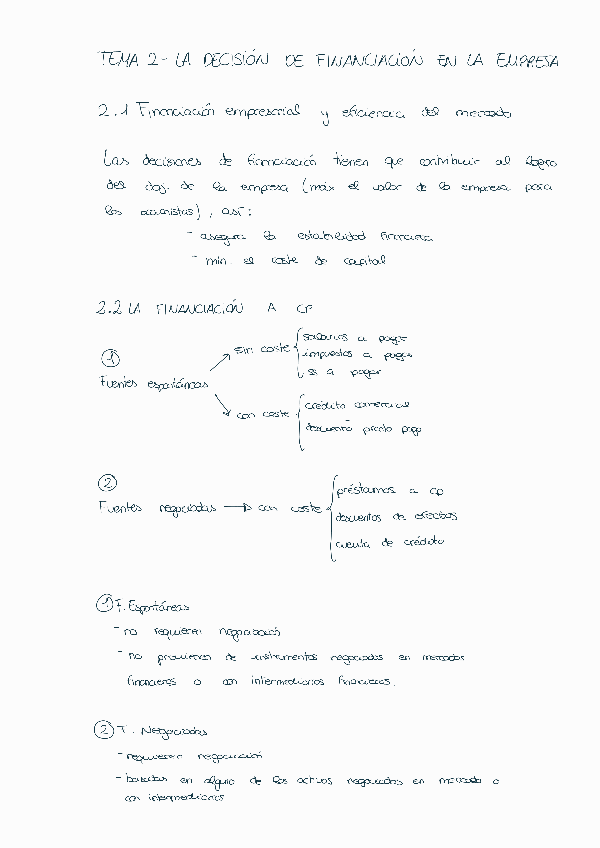 TEMA 2- LA DECISIÓN DE FINANCIACIÓN EN LA EMPRESA
2.1 Financiación empresarial y eficiencia del mercado
Las decisiones de financiación tienen que contribuir al logro
del obj. de la empresa (máx el valor de la empresa para
los accionistas), así:
- asegurar la estabilidad financiera
- min el coste de capital
2.2 LA FINANCIACIÓN A CP
① Fuentes espontáneas
sin coste
salarios a pagar
impuestos a pagar
ss a pagar
con coste
crédito comercial
descuento pronto pago
② Fuentes negociadas → con coste
préstamos a cp
descuentos de efectos
cuenta de crédito
① F. Espontáneas
- no requieren negociación
- no provienen de instrumentos negociados en mercados
financieros o con intermediarios financieros.
② F. Negociadas
- requieren negociación
- basadas en alguno de los activos negociados en mercado o
con intermediarios